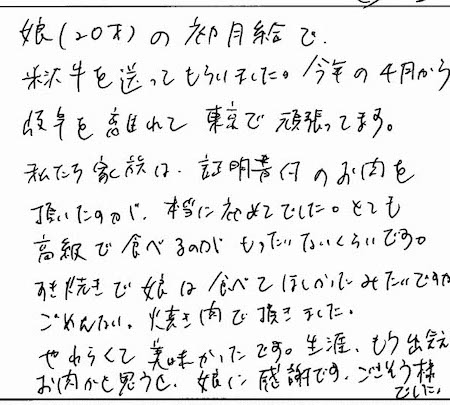 娘(20才)の初月給で、
米沢牛を送ってもらいました。今年の4月から
岐阜を離れて東京で頑張ってます。
私たち家族は、証明書付のお肉を
頂いたのが、本当に初めてでした。とても
高級で食べるのがもったいないくらいです。
すき焼きで娘は食べてほしかったみたいですが
ごめんなさい、焼き肉で頂きました。
やわらくて美味かったです。生涯、もう出会え
お肉かと思うと、娘に感謝です。ごちそう様
でした。